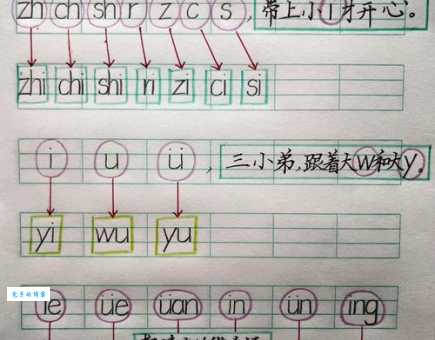 zh ch sh r z c s，带上小i才开心。
zhi chi shi ri zi ci si
i u ü，三小弟，跟着大w和大y。
yi wu yu
ie üe üan in ün ing